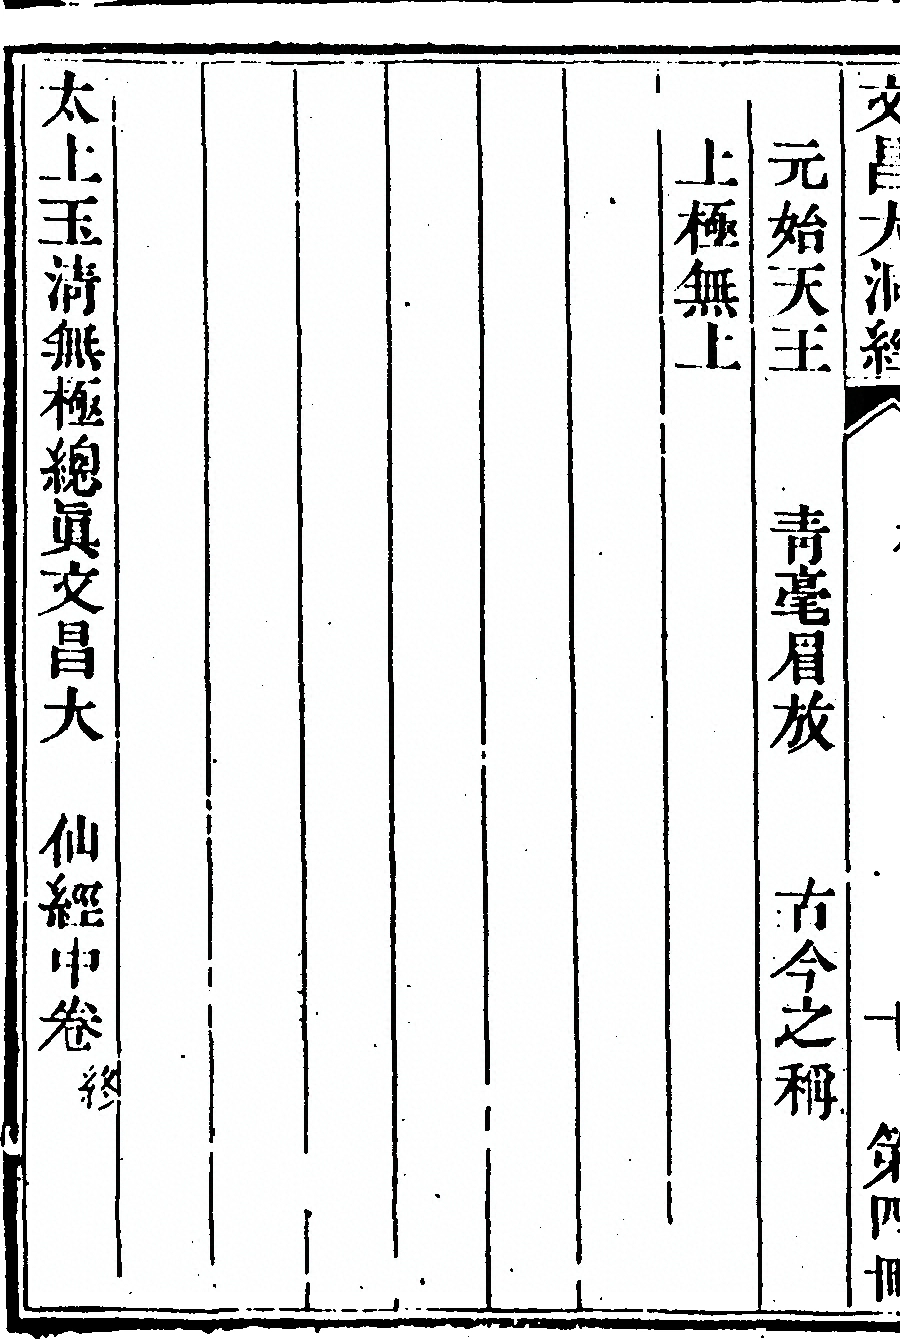 文昌大洞經
十
第四冊
元始天王　青毫眉放　古今之稱
上極無上
太上玉清無極總眞文昌大　仙經中卷終